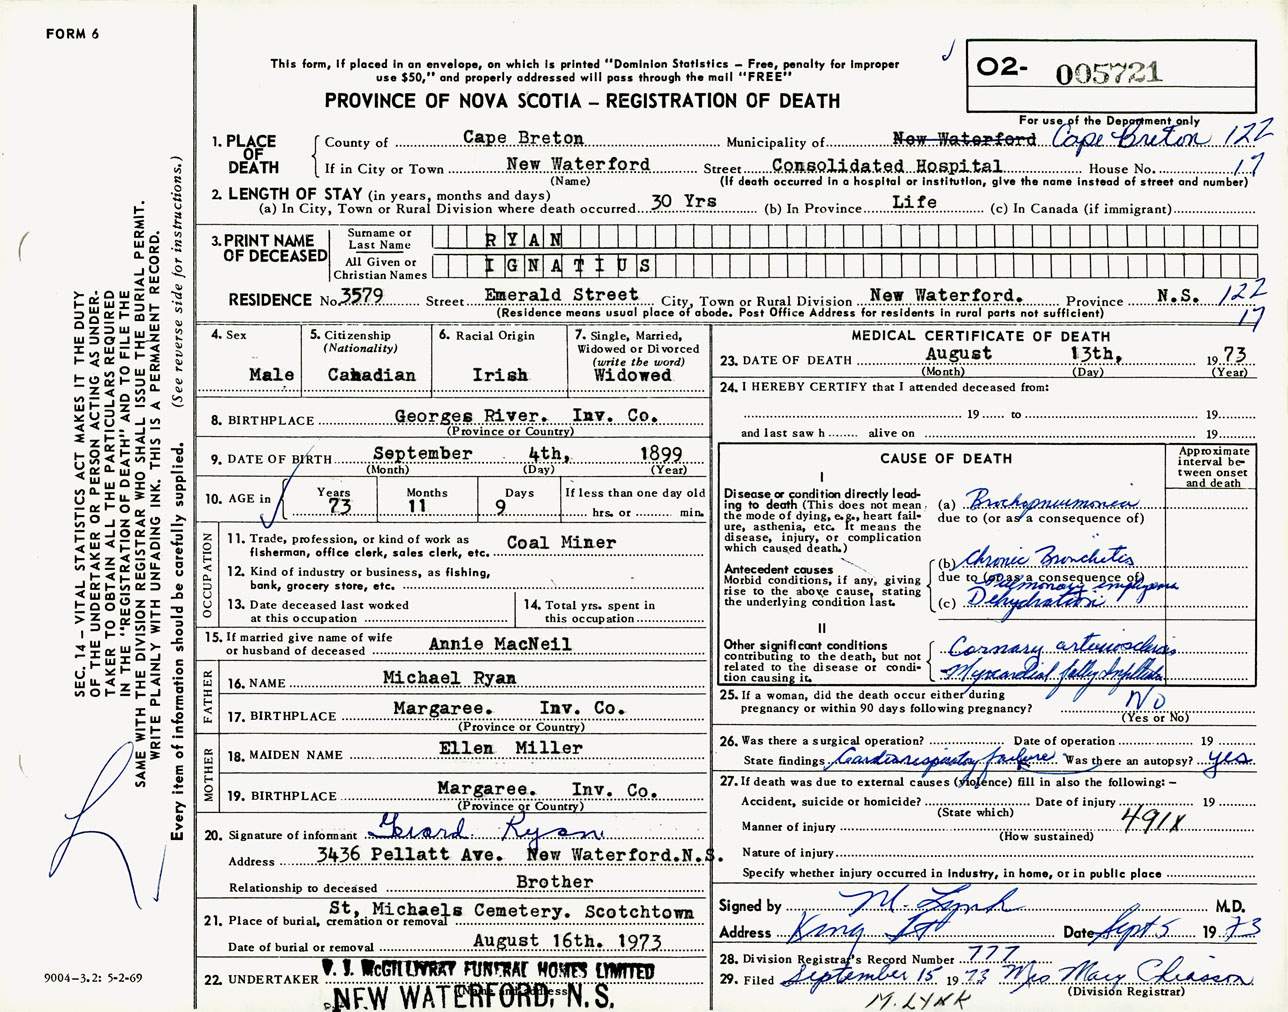 FORM 6
This form, if placed in an envelope, on which is printed "Dominion Statistics – Free, penalty for improper
use $50," and properly addressed will pass through the mail "FREE"
PROVINCE OF NOVA SCOTIA – REGISTRATION OF DEATH
O2- 005721
For use of the Department only
1. PLACE OF DEATH
County of Cape Breton Municipality of New Waterford Cape Breton 122
If in City or Town New Waterford Street Consolidated Hospital House No. 17
(Name) (If death occurred in a hospital or institution, give the name instead of street and number)
2. LENGTH OF STAY (in years, months and days)
(a) In City, Town or Rural Division where death occurred 30 Yrs (b) In Province Life (c) In Canada (if immigrant)
3. PRINT NAME OF DECEASED
Surname or Last Name RYAN
All Given or Christian Names IGNATIUS
RESIDENCE No. 3579 Street Emerald Street City, Town or Rural Division New Waterford. Province N.S. 122
(Residence means usual place of abode. Post Office Address for residents in rural parts not sufficient) 17
4. Sex Male
5. Citizenship (Nationality) Canadian
6. Racial Origin Irish
7. Single, Married, Widowed or Divorced (write the word) Widowed
8. BIRTHPLACE Georges River. Inv. Co.
(Province or Country)
9. DATE OF BIRTH September 4th, 1899
(Month) (Day) (Year)
10. AGE in Years 73 Months 11 Days 9 If less than one day old hrs. or min.
OCCUPATION
11. Trade, profession, or kind of work as fisherman, office clerk, sales clerk, etc. Coal Miner
12. Kind of industry or business, as fishing, bank, grocery store, etc.
13. Date deceased last worked at this occupation
14. Total yrs. spent in this occupation
15. If married give name of wife or husband of deceased Annie MacNeil
FATHER
16. NAME Michael Ryan
17. BIRTHPLACE Margaree. Inv. Co.
(Province or Country)
MOTHER
18. MAIDEN NAME Ellen Miller
19. BIRTHPLACE Margaree. Inv. Co.
(Province or Country)
20. Signature of informant Gerard Ryan
Address 3436 Pellatt Ave. New Waterford.N.S.
Relationship to deceased Brother
21. Place of burial, cremation or removal St, Michaels Cemetery. Scotchtown
Date of burial or removal August 16th. 1973
22. UNDERTAKER V. J. McGILLIVRAY FUNERAL HOMES LIMITED
NEW WATERFORD, N.S.
MEDICAL CERTIFICATE OF DEATH
23. DATE OF DEATH August 13th, 1973
(Month) (Day) (Year)
24. I HEREBY CERTIFY that I attended deceased from:
19 to 19
and last saw h alive on 19
CAUSE OF DEATH
Approximate interval between onset and death
I
Disease or condition directly lead-
ing to death (This does not mean
the mode of dying, e.g., heart fail-
ure, asthenia, etc. It means the
disease, injury, or complication
which caused death.)
(a) Brochopneumonia
due to (or as a consequence of)
Antecedent causes
Morbid conditions, if any, giving
rise to the above cause, stating
the underlying condition last.
(b) Chronic Bronchitis
due to (or as a consequence of)
Pulmonary emphysema
(c) Dehydration
II
Other significant conditions
contributing to the death, but not
related to the disease or condi-
tion causing it.
Cornary arteriosclerosis
Myocardial fatty Infiltration
25. If a woman, did the death occur either during
pregnancy or within 90 days following pregnancy? No
(Yes or No)
26. Was there a surgical operation? Date of operation 19
State findings Cardiorespiratory failure Was there an autopsy? yes
27. If death was due to external causes (violence) fill in also the following: –
Accident, suicide or homicide? Date of injury 19
(State which)
Manner of injury 491X
(How sustained)
Nature of injury
Specify whether injury occurred in industry, in home, or in public place
Signed by M. Lynk M.D.
Address King St Date Sept 5 1973
28. Division Registrar's Record Number 777
29. Filed September 15 1973 Mrs Mary Chiasson
(Division Registrar)
M. LYNK
SEC. 14 – VITAL STATISTICS ACT MAKES IT THE DUTY
OF THE UNDERTAKER OR PERSON ACTING AS UNDER-
TAKER TO OBTAIN ALL THE PARTICULARS REQUIRED
IN THE "REGISTRATION OF DEATH" AND TO FILE THE
SAME WITH THE DIVISION REGISTRAR WHO SHALL ISSUE THE BURIAL PERMIT.
WRITE PLAINLY WITH UNFADING INK. THIS IS A PERMANENT RECORD.
Every item of information should be carefully supplied. (See reverse side for instructions.)
9004–3.2: 5-2-69